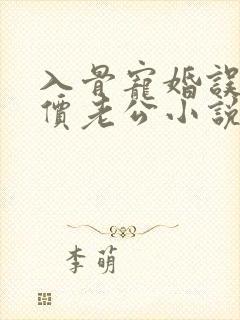 入骨寵婚誤
價老公小說
李萌